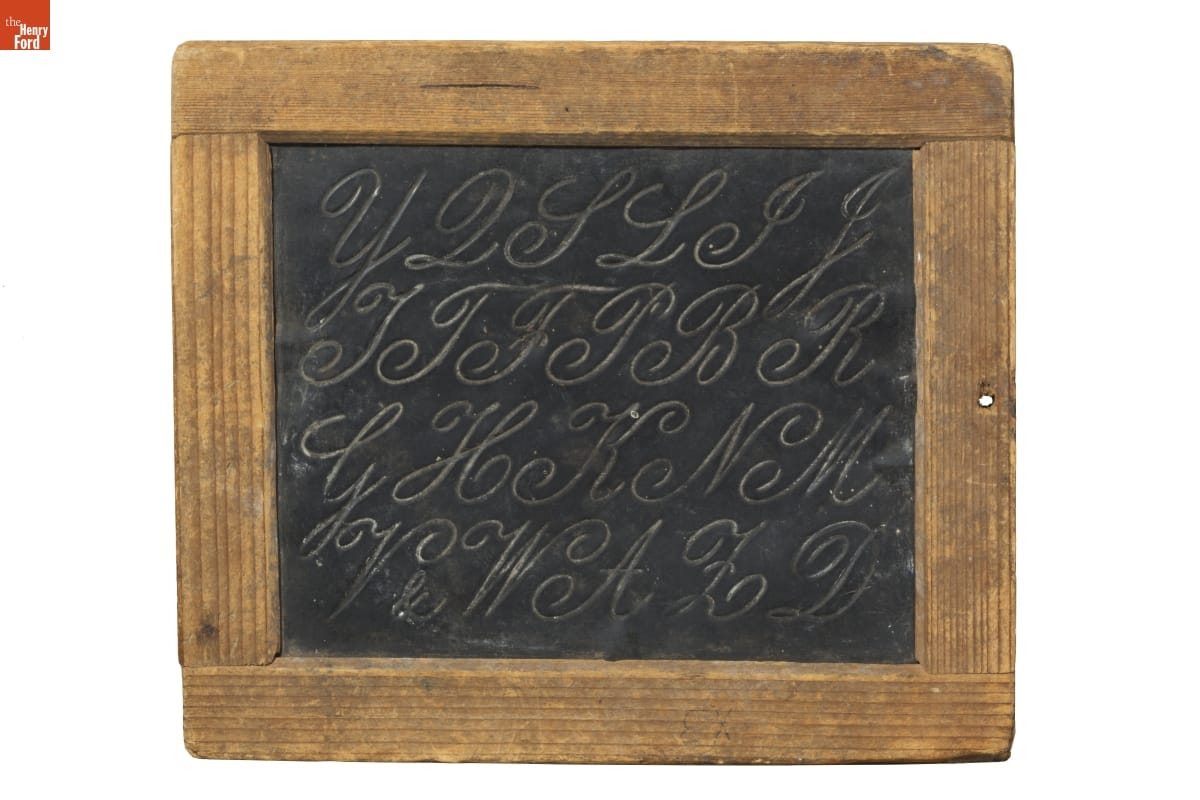 the
Henry
Ford
Y Q S L I J
T T F P B R
G H K N M
V & W A Z D